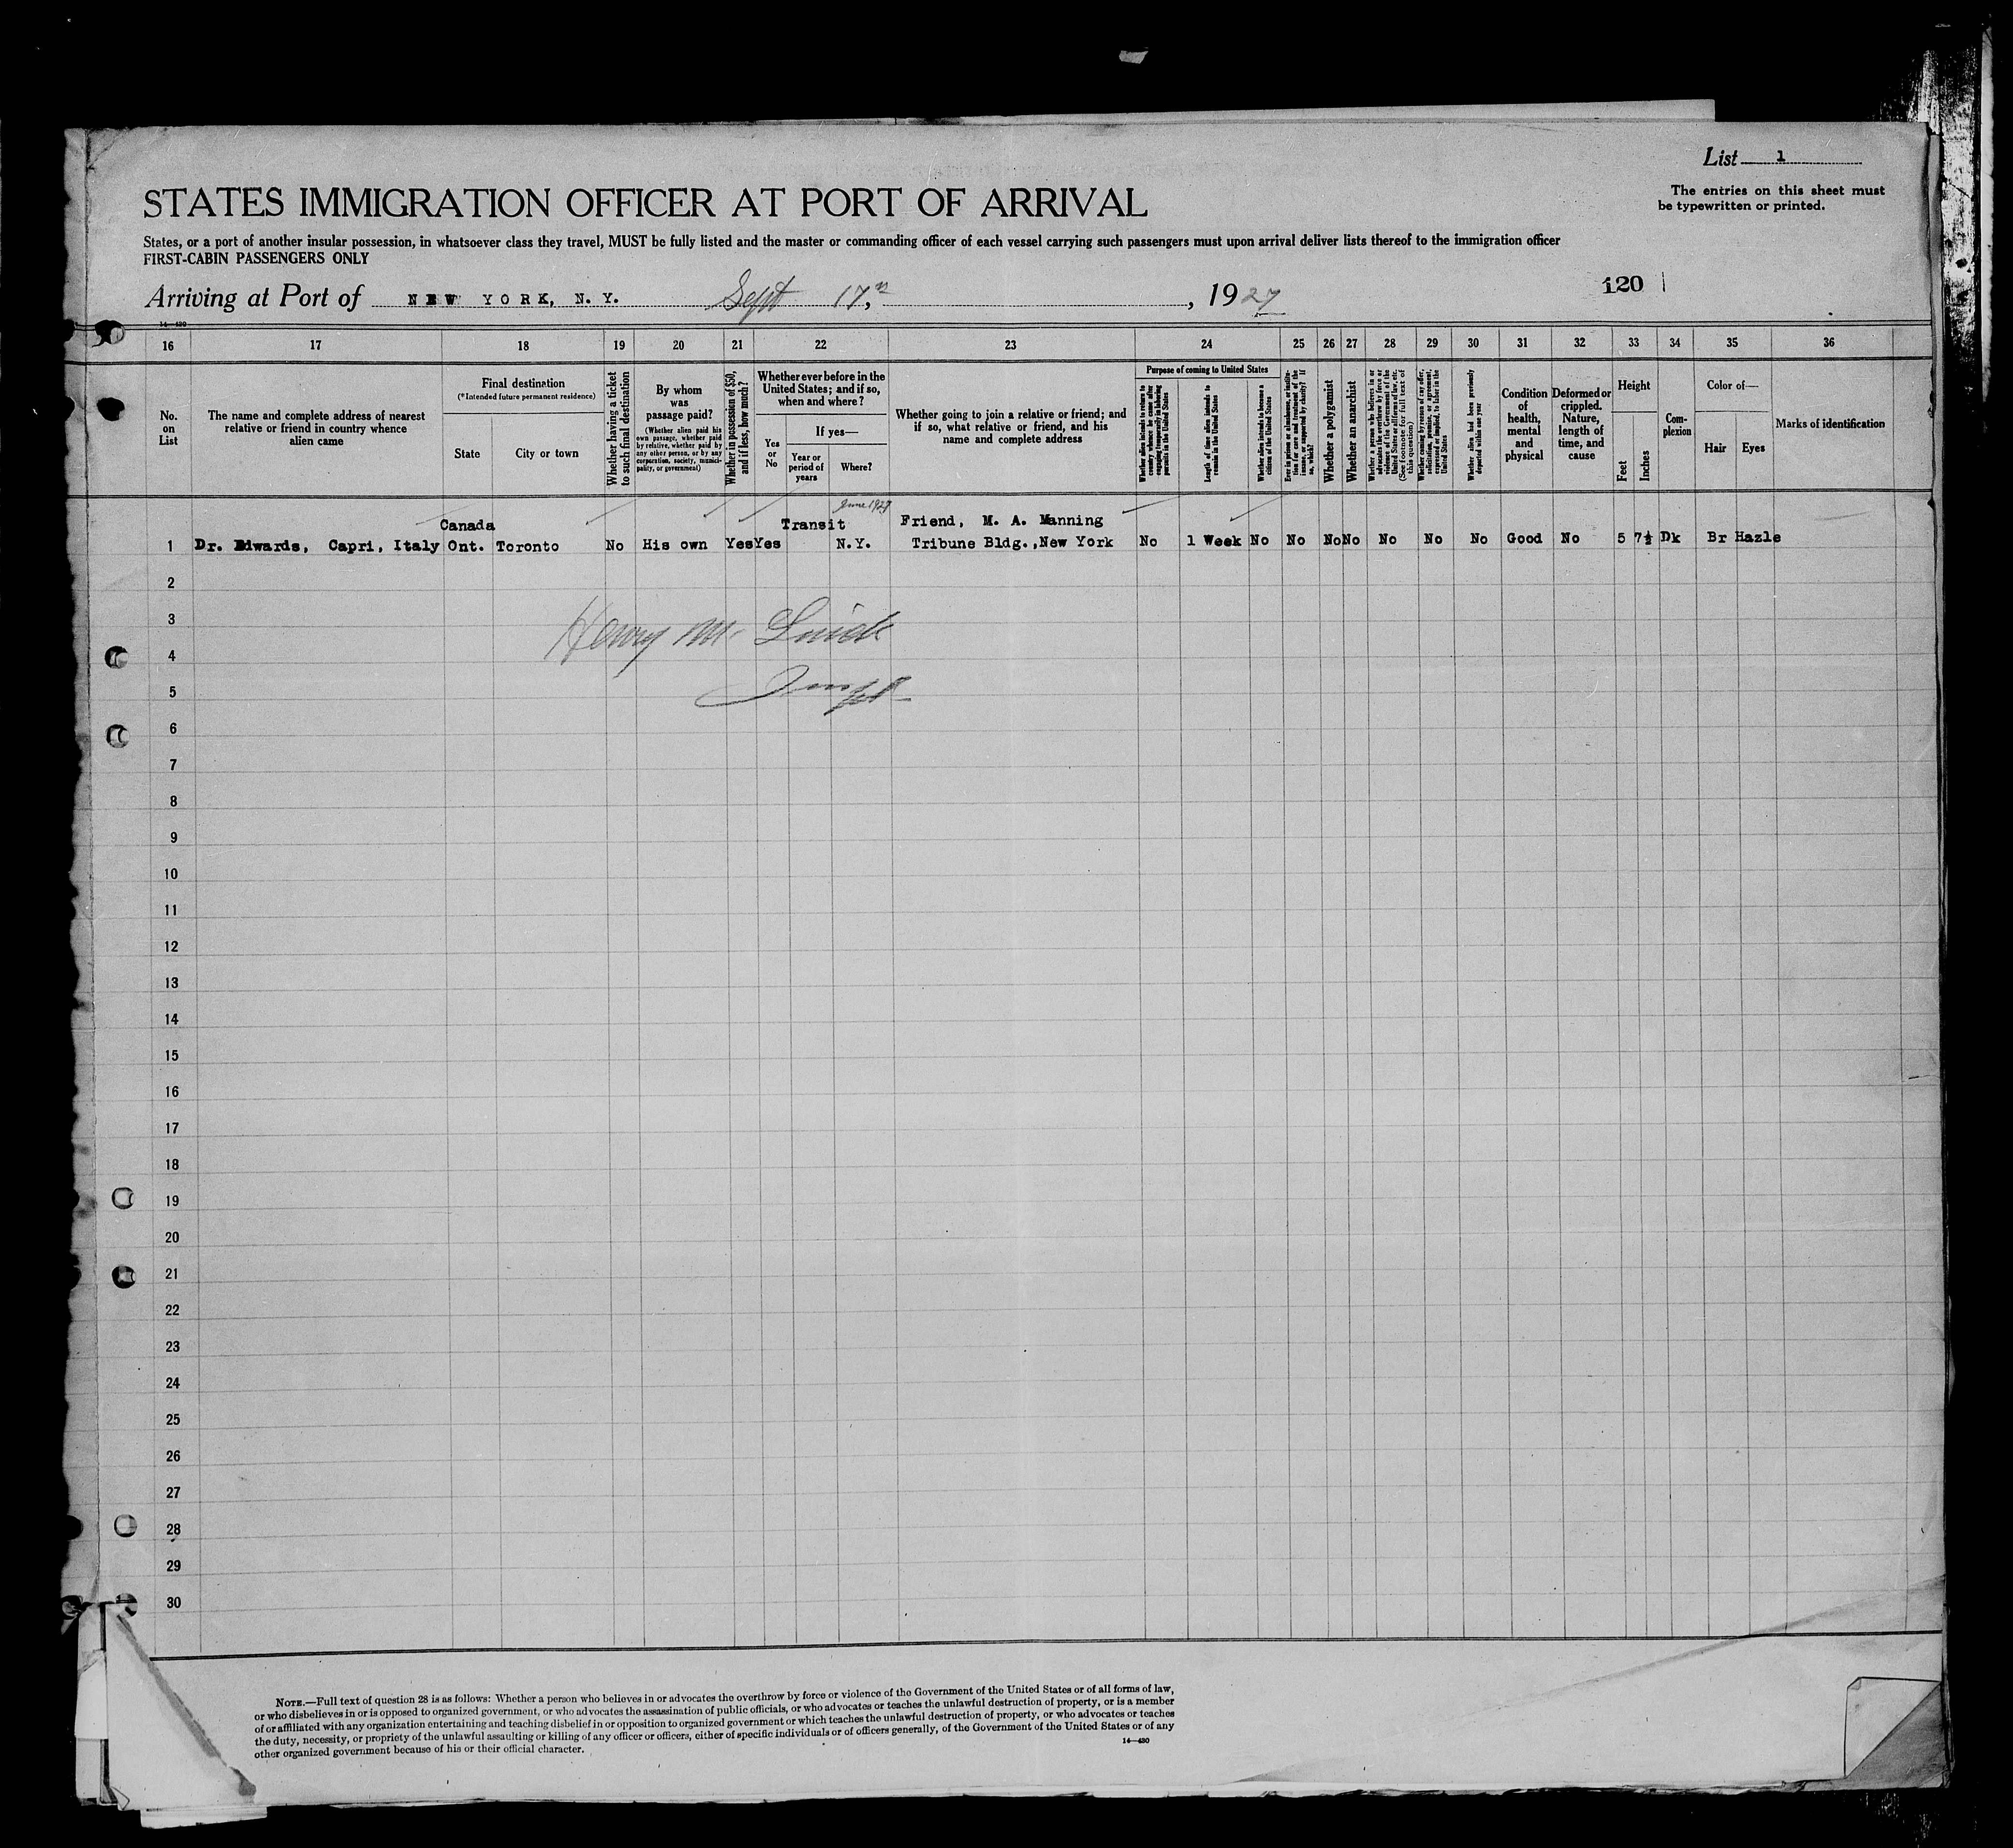 List 1
The entries on this sheet must
be typewritten or printed.
STATES IMMIGRATION OFFICER AT PORT OF ARRIVAL
States, or a port of another insular possession, in whatsoever class they travel, MUST be fully listed and the master or commanding officer of each vessel carrying such passengers must upon arrival deliver lists thereof to the immigration officer
FIRST-CABIN PASSENGERS ONLY
Arriving at Port of NEW YORK, N.Y. Sept 17, 1927
120
14—430
16 17 18 19 20 21 22 23 24 25 26 27 28 29 30 31 32 33 34 35 36
No.
on
List
The name and complete address of nearest
relative or friend in country whence
alien came
Final destination
(*Intended future permanent residence)
State
City or town
Whether having a ticket
to such final destination
By whom
was
passage paid?
(Whether alien paid his
own passage, whether paid
by relative, whether paid by
any other person, or by any
corporation, society, munici-
pality, or government)
Whether in possession of $50,
and if less, how much?
Whether ever before in the
United States; and if so,
when and where?
Yes
or
No
If yes—
Year or
period of
years
Where?
Whether going to join a relative or friend; and
if so, what relative or friend, and his
name and complete address
Purpose of coming to United States
Whether alien intends to return to
country whence he came after
engaging temporarily in laboring
pursuits in the United States
Length of time alien intends to
remain in the United States
Whether alien intends to become a
citizen of the United States
Ever in prison or almshouse, or institu-
tion for care and treatment of the
insane, or supported by charity? If
so, which?
Whether a polygamist
Whether an anarchist
Whether a person who believes in or
advocates the overthrow by force or
violence of the Government of the
United States or all forms of law, etc.
(See footnote for full text of
this question)
Whether coming by reason of any offer,
solicitation, promise, or agreement,
expressed or implied, to labor in the
United States
Whether alien had been previously
deported within one year
Condition
of
health,
mental
and
physical
Deformed or
crippled.
Nature,
length of
time, and
cause
Height
Feet
Inches
Com-
plexion
Color of—
Hair
Eyes
Marks of identification
June 1927
Canada Transit Friend, M. A. Manning
1 Dr. Edwards, Capri, Italy Ont. Toronto No His own Yes Yes N.Y. Tribune Bldg.,New York No 1 Week No No No No No No No Good No 5 7½ Dk Br Hazle
2
3
Henry M.
4
5
6
7
8
9
10
11
12
13
14
15
16
17
18
19
20
21
22
23
24
25
26
27
28
29
30
NOTE.—Full text of question 28 is as follows: Whether a person who believes in or advocates the overthrow by force or violence of the Government of the United States or of all forms of law,
or who disbelieves in or is opposed to organized government, or who advocates the assassination of public officials, or who advocates or teaches the unlawful destruction of property, or is a member
of or affiliated with any organization entertaining and teaching disbelief in or opposition to organized government or which teaches the unlawful destruction of property, or who advocates or teaches
the duty, necessity, or propriety of the unlawful assaulting or killing of any officer or officers, either of specific individuals or of officers generally, of the Government of the United States or of any
other organized government because of his or their official character.
14—430